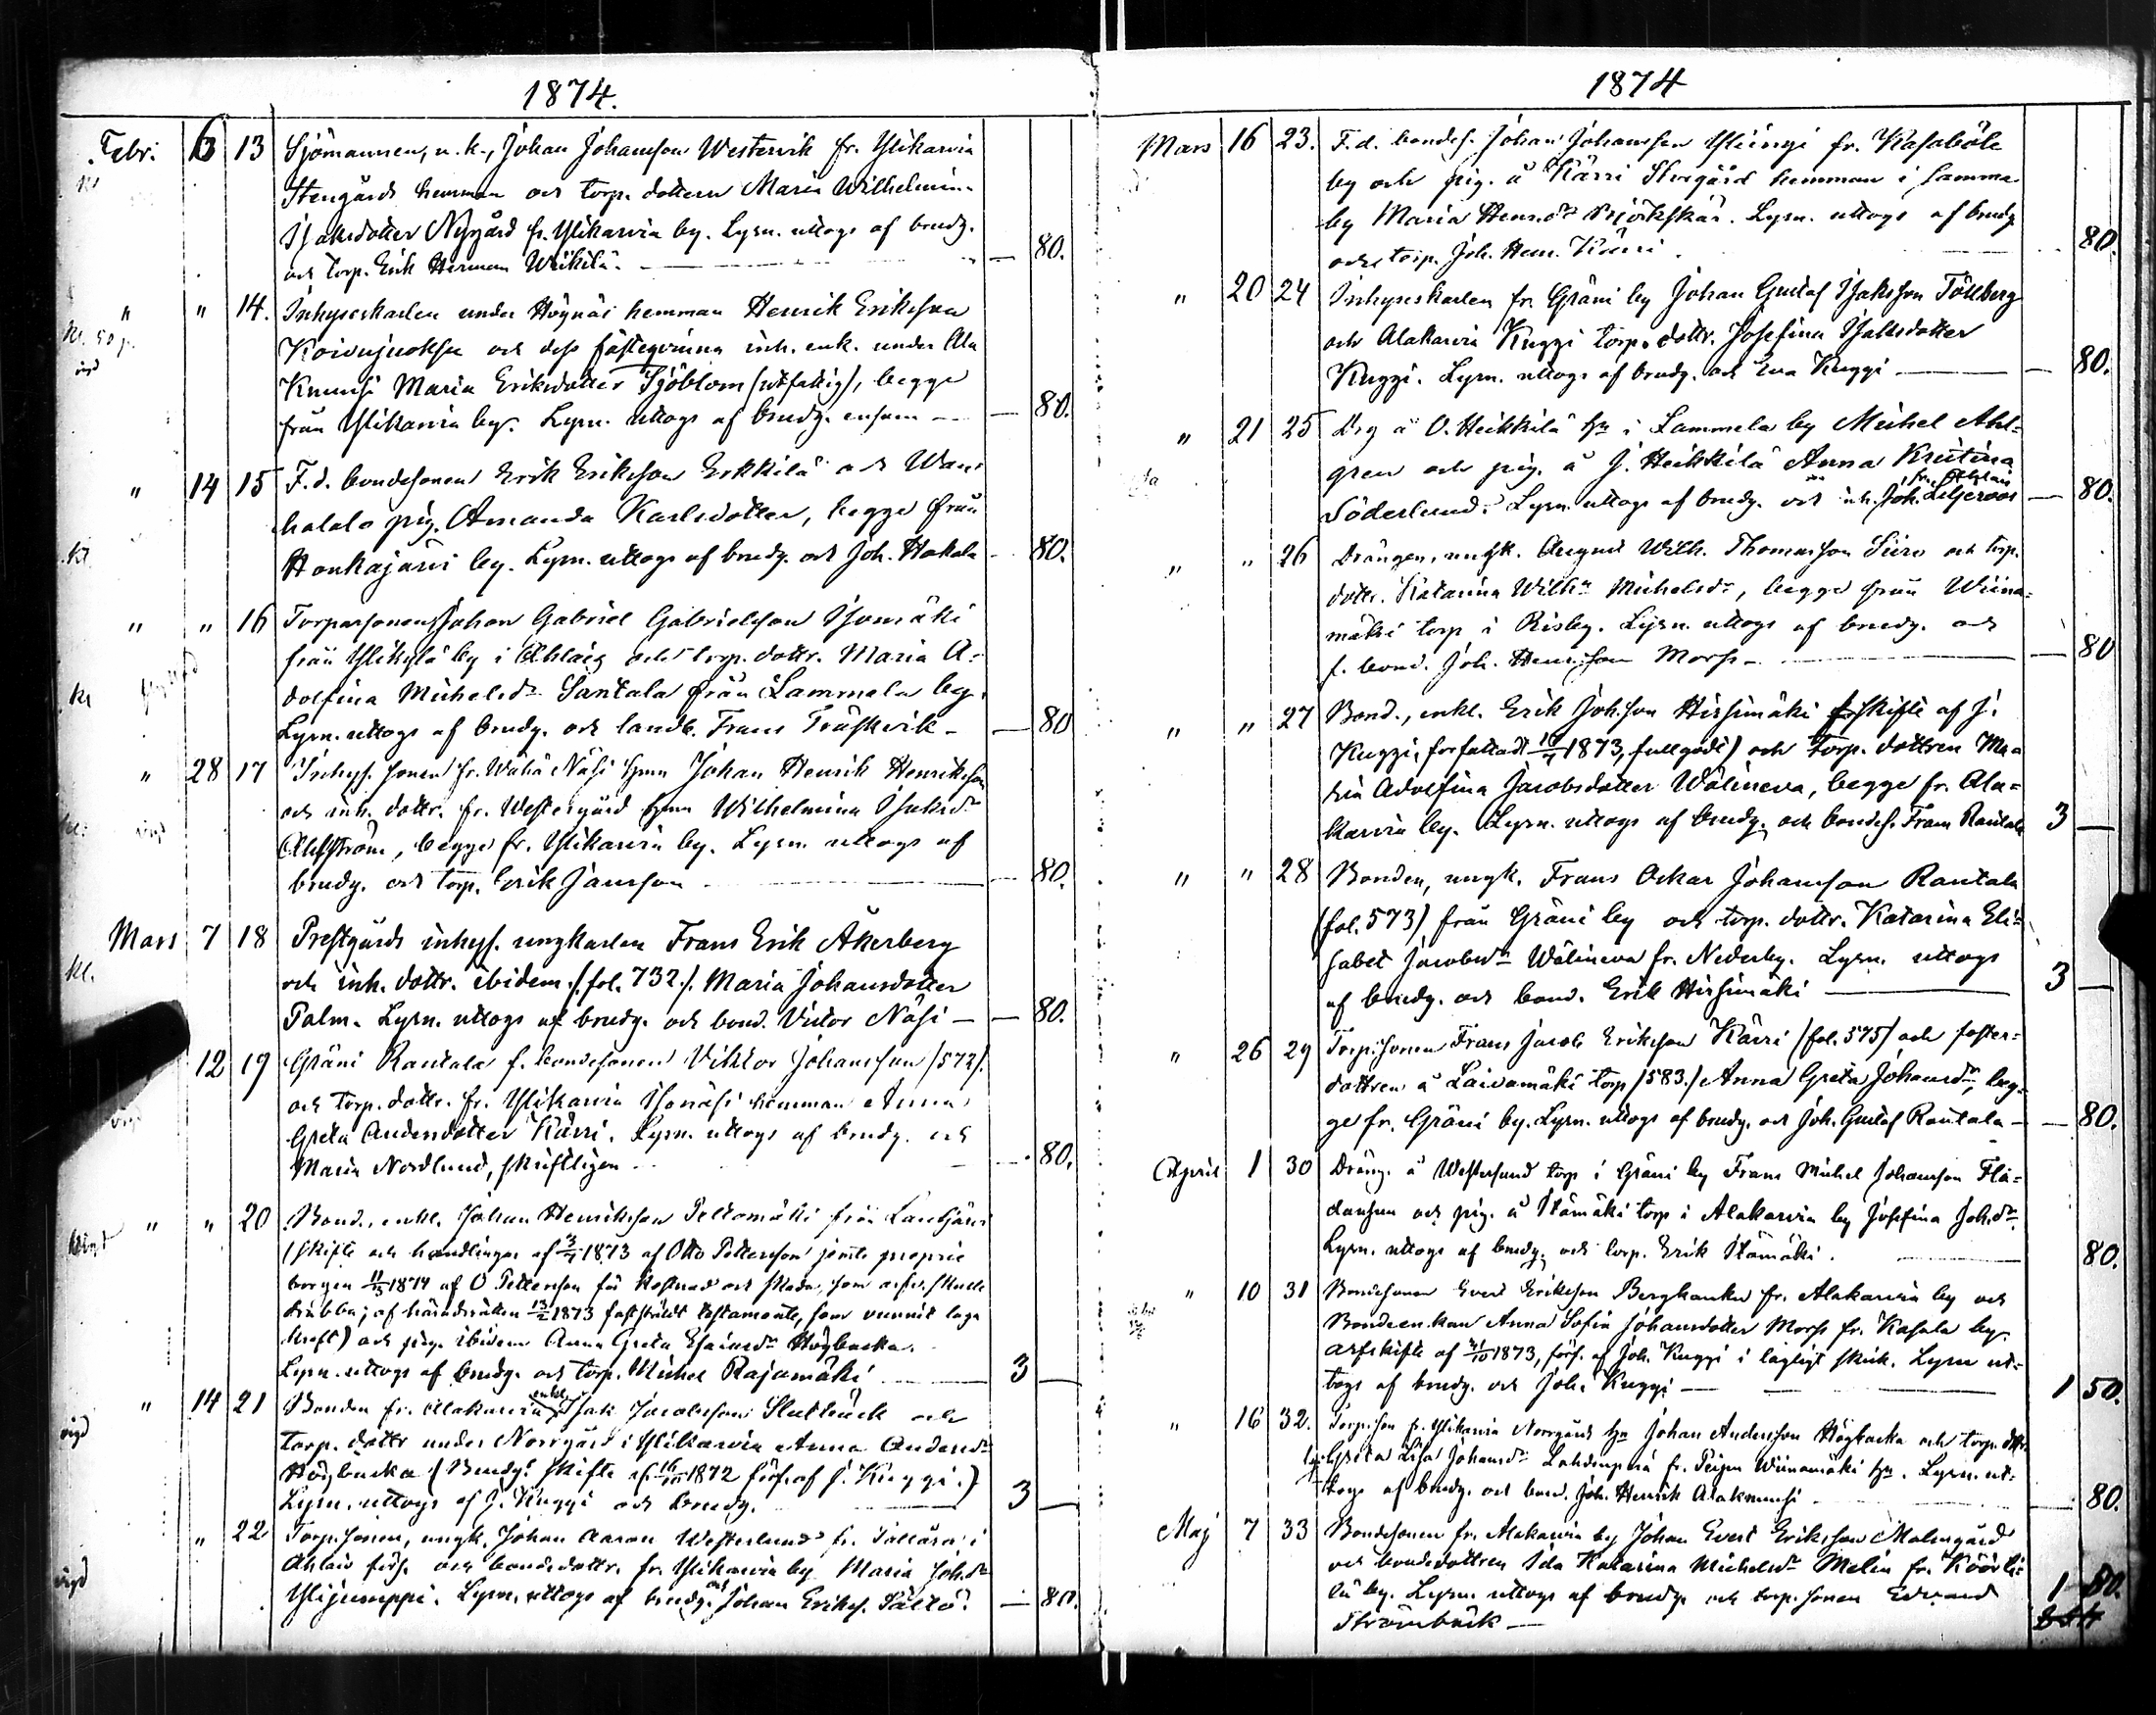 1874.
Febr. 6 13 Sjömannen, u. k., Johan Johansson Westervik fr. Ylikarvia
Stengårds hemman och torp. dottern Maria Wilhelmin.
Isaksdotter Nygård fr. Ylikarvia by. Lysn. uttogs af brudg.
och torp. Erik Herman Weikilä. — — 80.
" " 14. Inhyseskarlen under Högnäs hemman Henrik Eriksson
Koivujuoksu och dess fästeqvinna inh. enk. under Ala
Knuusi Maria Eriksdotter Sjöblom (utfattig), begge
från Ylikarvia by. Lysn. uttogs af brudg. ensam — — 80.
" 14 15 F. d. bondesonen Erik Eriksson Erkkilä och Wan-
hatalo pig. Amanda Karlsdotter, begge från
Honkajärvi by. Lysn. uttogs af brudg. och Joh. Hakala — 80.
" " 16 Torparsonen Johan Gabriel Gabrielsson Isomäki
från Ylikylä by i Ahlais och torp. dottr. Maria A-
dolfina Michelsdr Santala från Lammela by.
Lysn. uttogs af brudg. och landb. Frans Träskvik — — 80
" 28 17 Inhys. sonen fr. Wähä Näsi hmn Johan Henrik Henriksson
och inh. dottr. fr. Westergård hmn Wilhelmina Isaksdr
Ahlström, begge fr. Ylikarvia by. Lysn. uttogs af
brudg. och torp. Erik Jansson — — 80.
Mars 7 18 Prestgårds inhys. ungkarlen Frans Erik Åkerberg
kl.
och inh. dottr. ibidem /fol. 732./ Maria Johansdotter
Palm. Lysn. uttogs af brudg. och bond. Victor Näsi — — 80.
12 19 Gräni Rantala f. bondesonen Viktor Johansson /573/.
och torp. dottr. fr. Ylikarvia Isonäsi hemman Anna
Greta Andersdotter Kärri. Lysn. uttogs af brudg. och
Maria Nordlund, skriftligen — 80.
" " 20 Bond., enkl. Johan Henriksson Peltomäki från Lankjärvi
(skifte och handlingar af 3/7 1873 af Otto Pettersson jemte proprie
borgen 11/3 1874 af O Pettersson för kostnad och skada, som arfv. skulle
drabba; af häradsrätten 1873 fastställdt testamente, som vunnit laga
kraft) och pig. ibidem Anna Greta Esaiasdr Högbacka.
Lysn. uttogs af brudg. och torp. Michel Rajamäki — 3 —
" 14 21 Bonden fr. Alakarvia, enkl. Isak Jacobsson Slutbäck och
torp. dottr under Norrgård i Ylikarvia Anna Andersdr
vigd
Högbacka (Brudg:s skifte af 16/10 1872 förf. af J. Kuggi.)
Lysn. uttogs af J. Kuggi och brudg. — 3 —
" 22 Torp. sonen, ungk. Johan Aaron Westerlund fr. i
Ahlais förs. och bondedottr. fr. Ylikarvia by Maria Joh.dr
vigd
Ylijumppi. Lysn. uttogs af brudg. och Johan Eriks. Sältö. — 80.
1874
Mars 16 23. F. d. bondes. Johan Johansson fr. Kasaböle
by och pig. å Kärri Storgård hemman i samma
by Maria Henr.dr Björkskär. Lysn. uttogs af brudg
och torp. Joh. Henr. Kärri. — 80.
" 20 24 Inhyseskarlen fr. Gräni by Johan Gustaf Isaksson Töllberg
och Alakarvia Kuggi torp. dottr. Josefina Isaksdotter
Kuggi. Lysn. uttogs af brudg. och Eva Kuggi — — 80.
" 21 25 Drg å O. Heikkilä hn i Lammela by Michel Ahl-
gren och pig. å J. Heikkilä Anna Kristina
fr. Ahlais
Söderlund. Lysn. uttogs af brudg. och inh. Joh. Liljeroos — 80.
" " 26 Drängen, ungk. August Wilh. Thomasson Siiro och torp.
dottr. Katarina Wilhna Michelsdr, begge från Wiina-
mäki torp i Risby. Lysn. uttogs af brudg. och
f. bond. Joh. Henriksson Morss — — 80
" " 27 Bond., enkl. Erik Joh.son Hirsimäki (skifte af J.
Kuggi, författadt 1873, fullgodt) och torp. dottren Ma-
ria Adolfina Jacobsdotter Wälineva, begge fr. Ala-
karvia by. Lysn. uttogs af brudg. och bondes. Frans Rantala 3 —
" " 28 Bonden, ungk. Frans Oskar Johansson Rantala
(fol. 573) från Gräni by och torp. dottr. Katarina Eli-
sabet Jacobsdr Wälineva fr. Nederby. Lysn. uttogs
af brudg. och bond. Erik Hirsimäki — 3 —
" 26 29 Torp. sonen Frans Jacob Eriksson Kärri /fol. 575/ och foster-
dottren å Laivamäki torp /583./ Anna Greta Johansdr, beg-
ge fr. Gräni by. Lysn. uttogs af brudg. och Joh. Gustaf Rantala — — 80.
April 1 30 Dräng. å Westersund torp i Gräni by Frans Michel Johansson Fla-
dansuu och pig. å Itämäki torp i Alakarvia by Josefina Joh.dr
Lysn. uttogs af brudg. och torp. Erik Itämäki. — 80.
" 10 31 Bondesonen Evert Eriksson Berghanka fr. Alakarvia by och
Bondeenkan Anna Sofia Johansdotter Morss fr. Kasala by.
arfskifte af 21/10 1873, förf. af Joh. Kuggi i lagligt skick. Lysn ut-
togs af brudg. och Joh. Kuggi — — 1 50.
" 16 32. Torp. son fr. Ylikarvia Norrgård hn Johan Andersson Högbacka och torp. dottr.
Greta Lisa Johansdr Lahdenperä fr. Peipu Wiinamäki hn. Lysn. ut-
togs af brudg. och bond. Joh. Henrik Alaknuusi — — 80.
Maj 7 33 Bondesonen fr. Alakarvia by Johan Evert Eriksson Malmgård
och bondedottren Ida Katarina Michelsdr Melin fr. Köörti-
lä by. Lysn. uttogs af brudg. och torp. sonen Edvard 1 80.
Strömbäck —